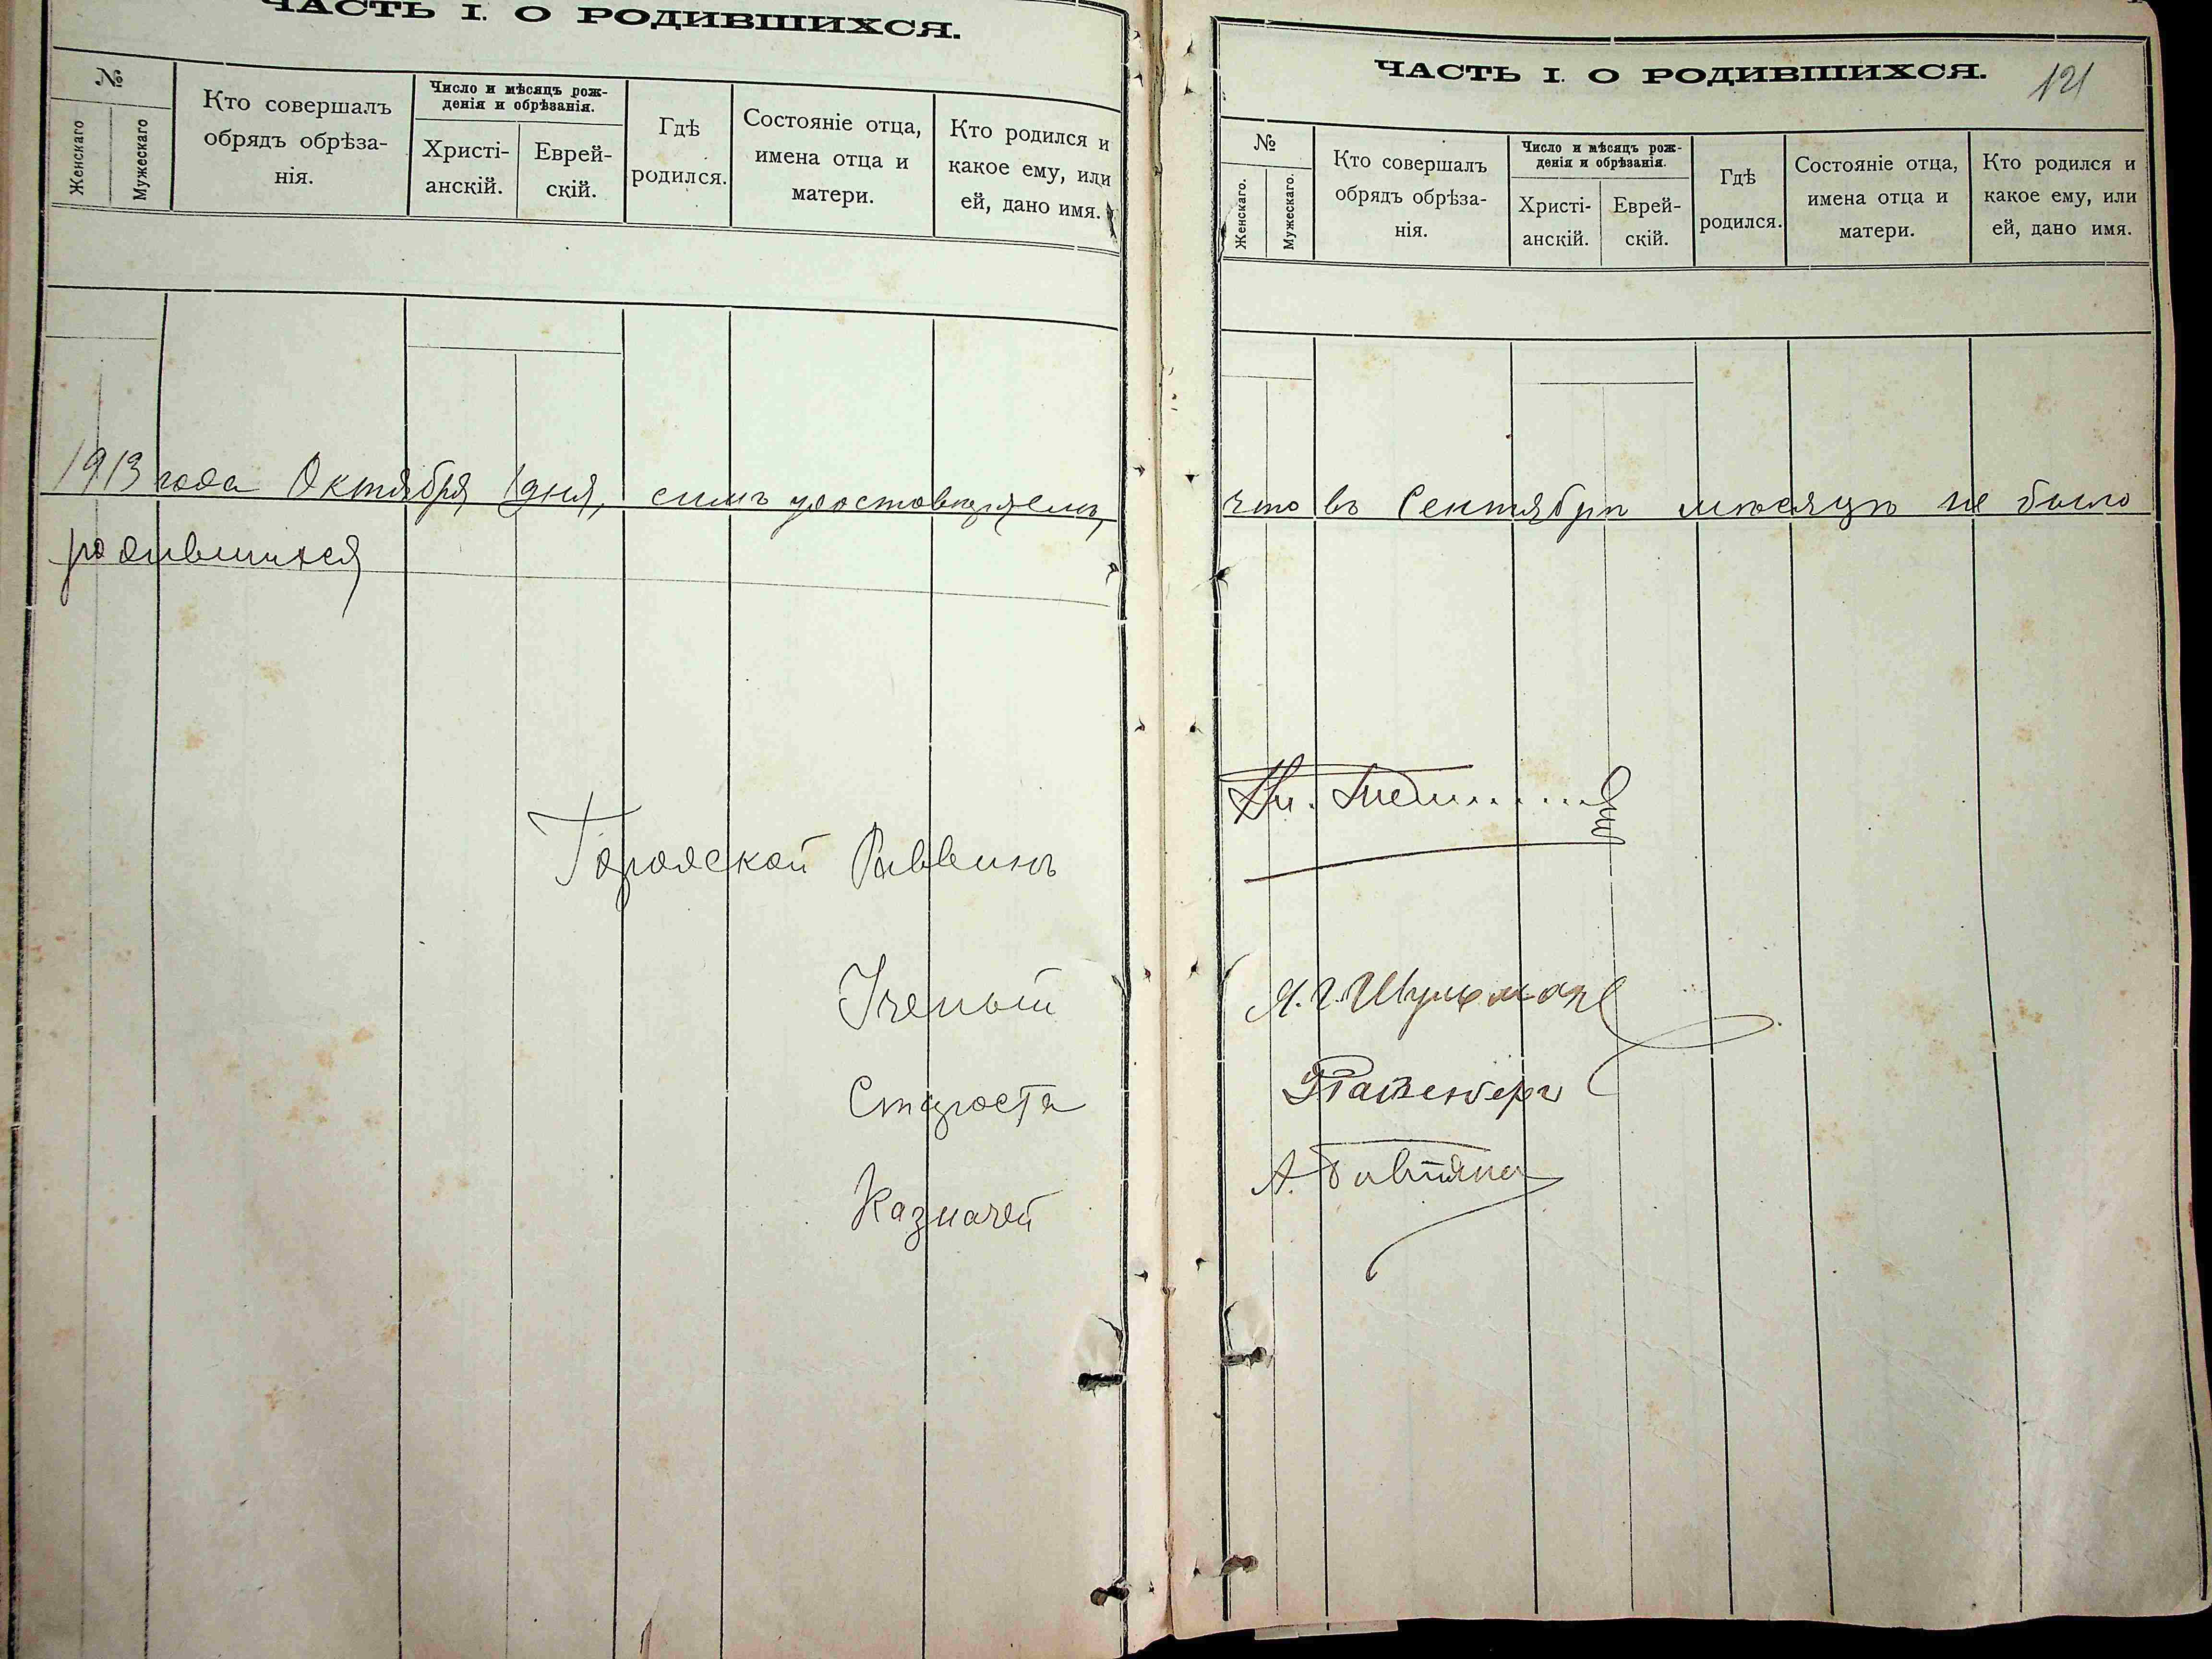 ЧАСТЬ I. О РОДИВШИХСЯ.
№
Женскаго
Мужескаго
Кто совершалъ
обрядъ обрѣза-
нія.
Число и мѣсяцъ рож-
денія и обрѣзанія.
Христі-
анскій.
Еврей-
скій.
Гдѣ
родился.
Состояніе отца,
имена отца и
матери.
Кто родился и
какое ему, или
ей, дано имя.
1913 года Октября 1 дня, симъ удостовѣряемъ,
родившихся
Городской Раввинъ
Ученый
Староста
Казначей
ЧАСТЬ I. О РОДИВШИХСЯ.
121
№
Женскаго.
Мужескаго.
Кто совершалъ
обрядъ обрѣза-
нія.
Число и мѣсяцъ рож-
денія и обрѣзанія.
Христі-
анскій.
Еврей-
скій.
Гдѣ
родился.
Состояніе отца,
имена отца и
матери.
Кто родился и
какое ему, или
ей, дано имя.
что въ Сентябрѣ мѣсяцѣ не было
Шульманъ
А.